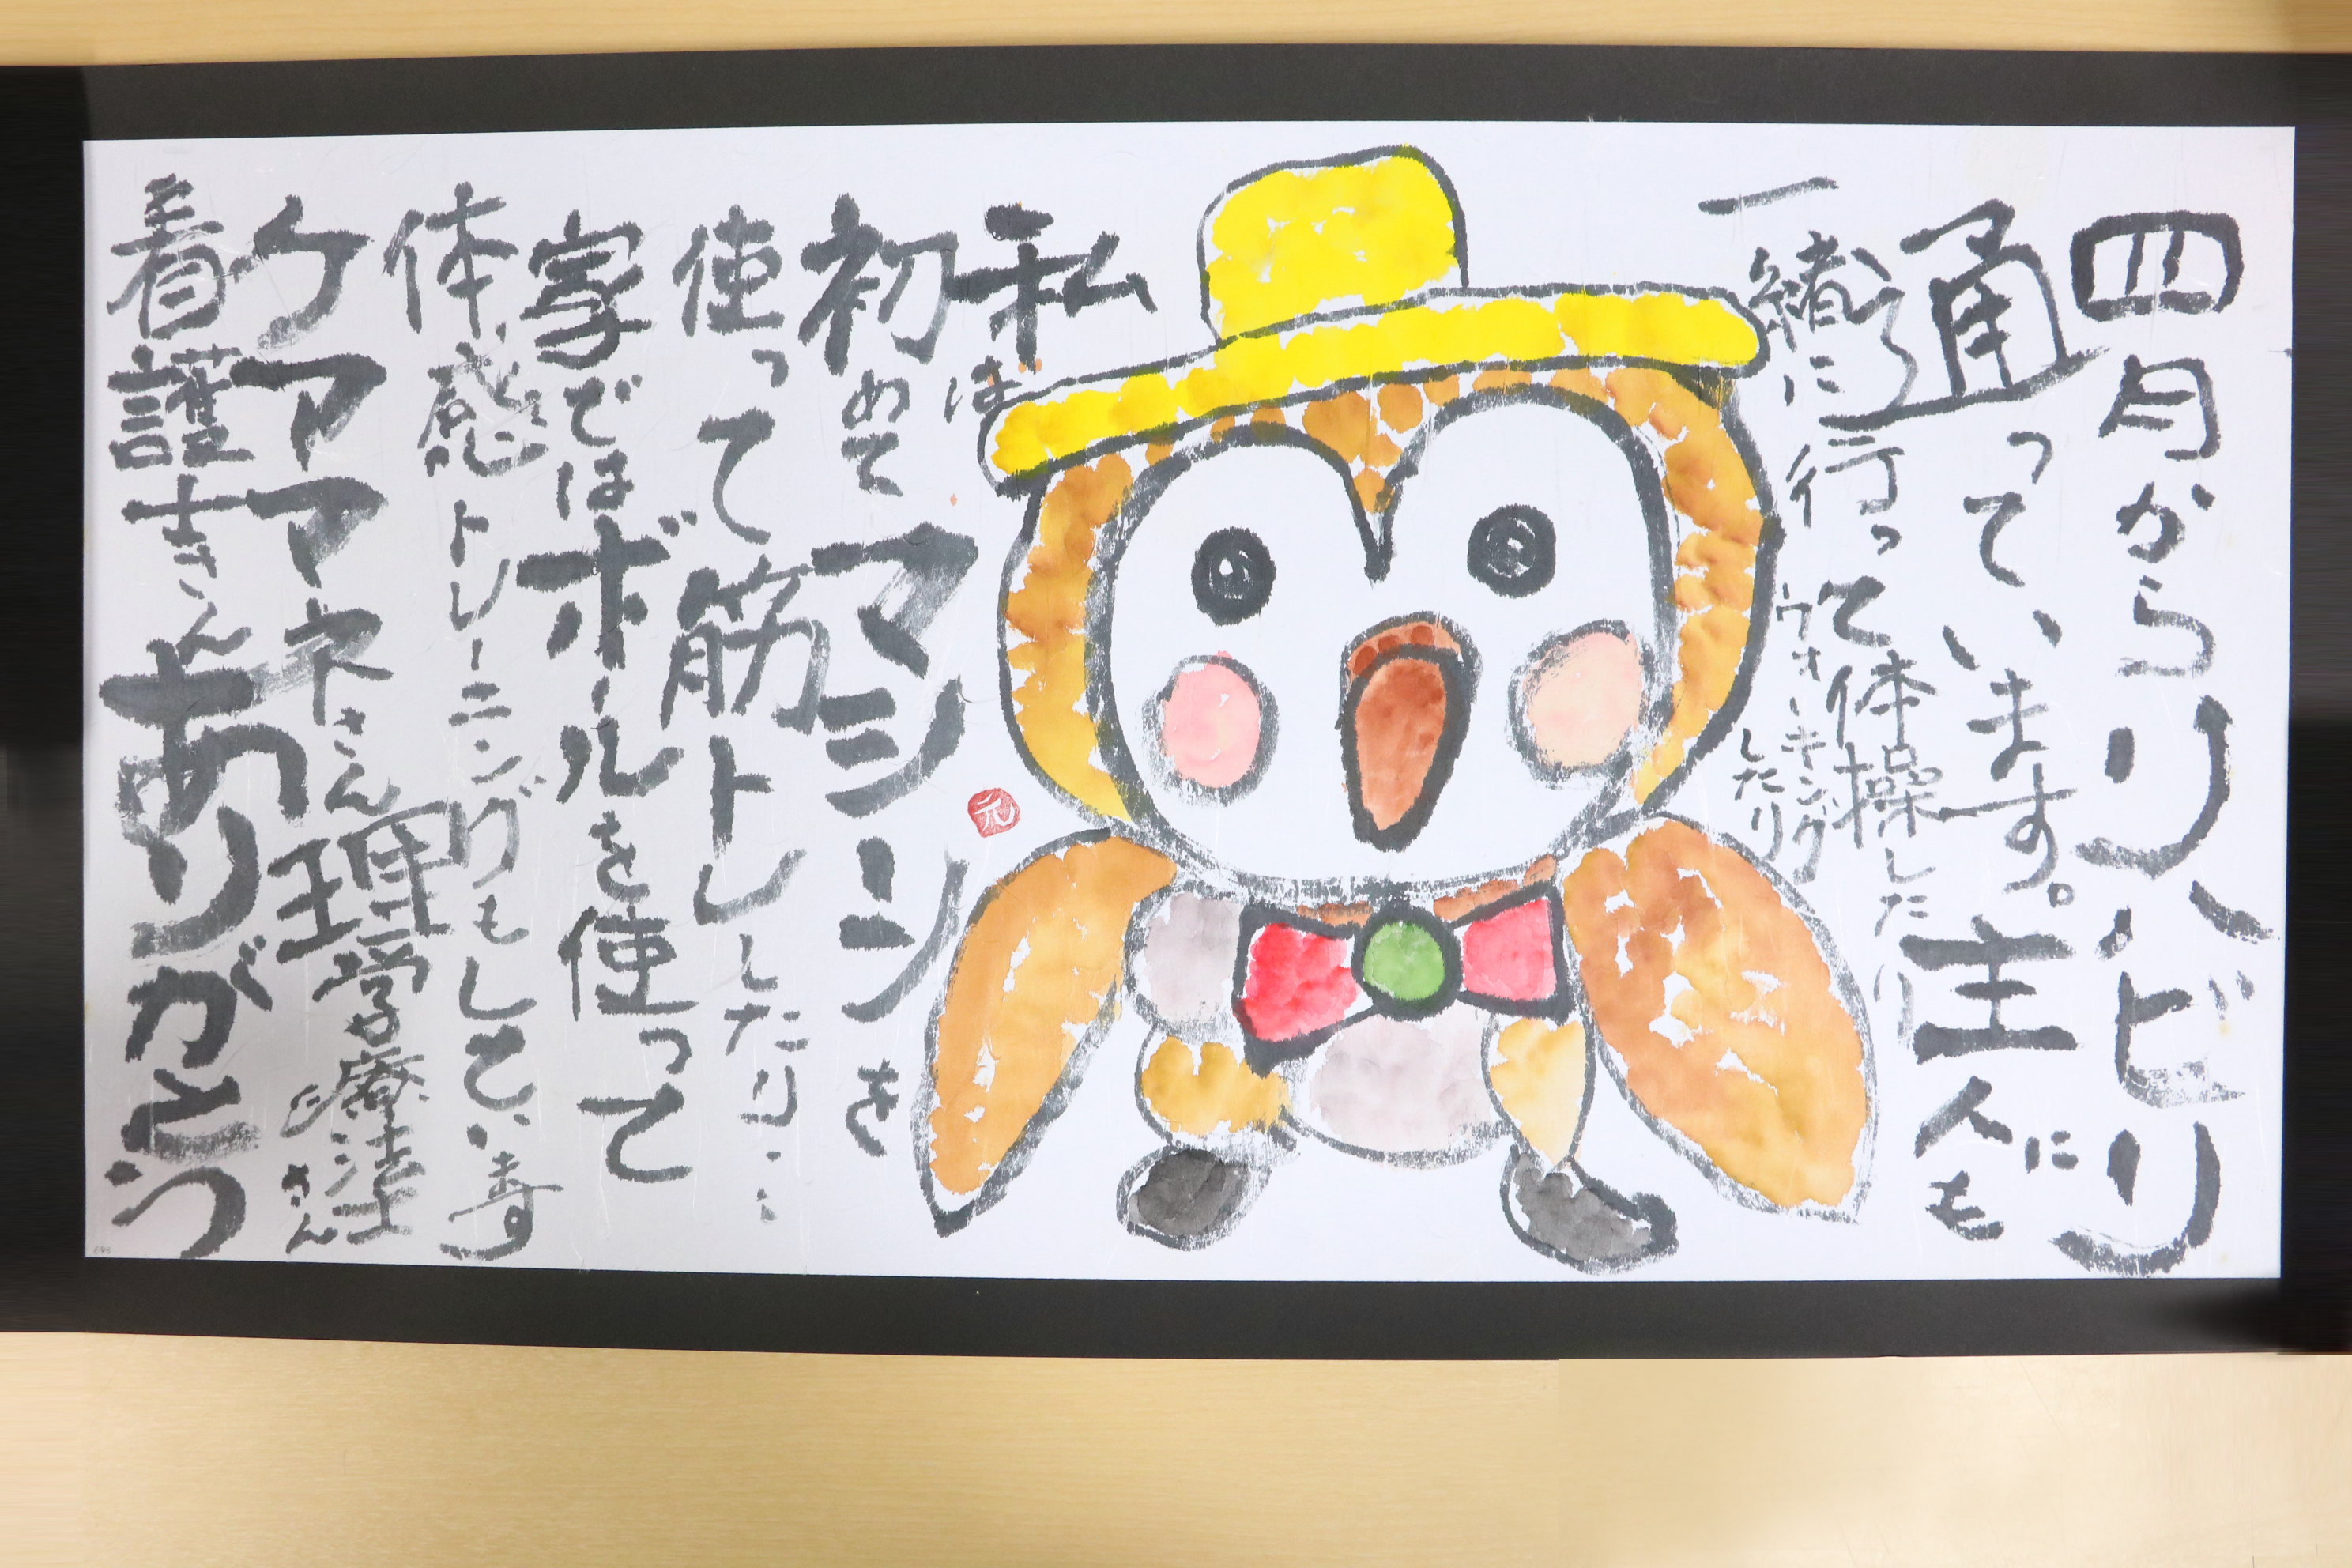 四月からリハビリに
通っています。主人も
一緒に行って体操したり
ウォーキング
したり
私は
初めてマシンを
使って筋トレしたり…
家ではボールを使って
体感トレーニングもしています
ケアマネさん理学療法士さん
看護士さんありがとう
元